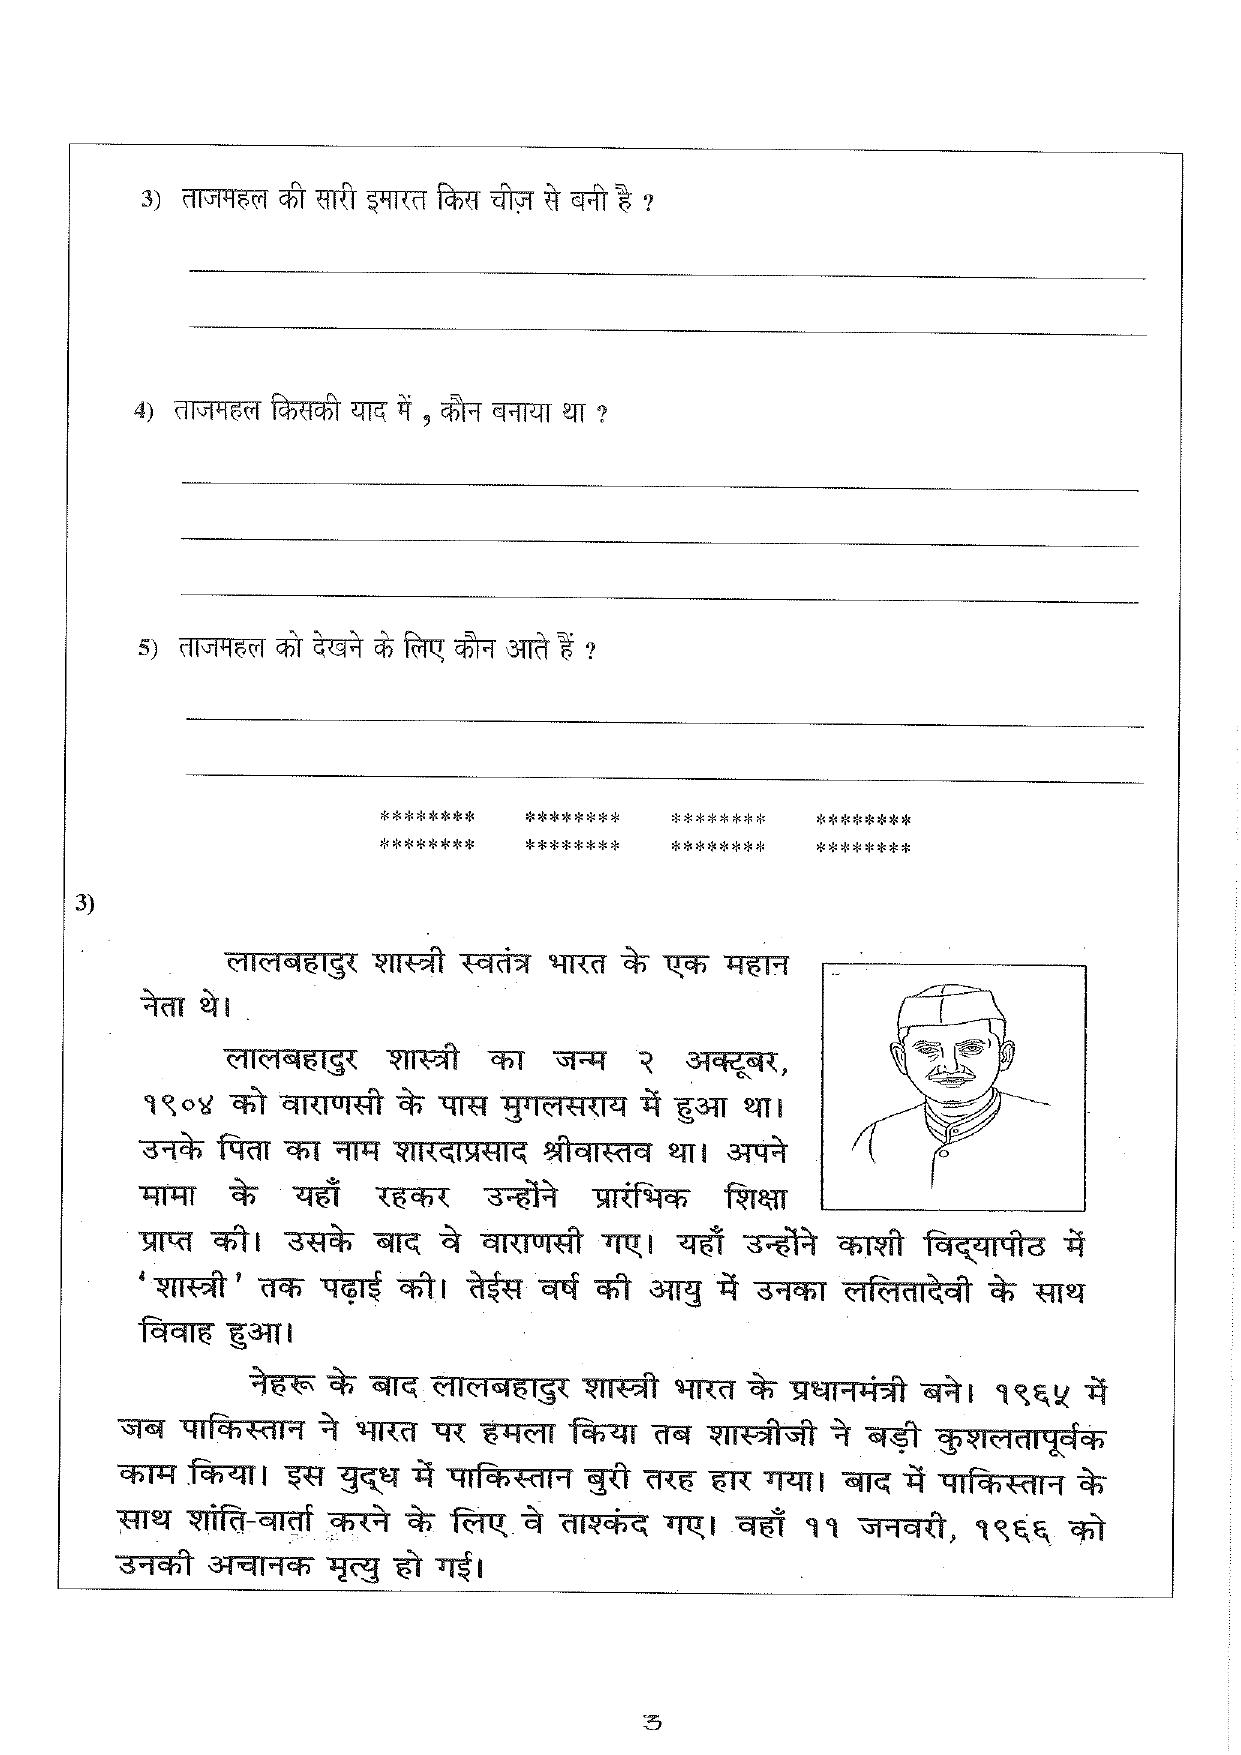 3) ताजमहल की सारी इमारत किस चीज़ से बनी है ?
4) ताजमहल किसकी याद में , कौन बनाया था ?
5) ताजमहल को देखने के लिए कौन आते हैं ?
******** ******** ******** ********
******** ******** ******** ********
3)
लालबहादुर शास्त्री स्वतंत्र भारत के एक महान
नेता थे।
लालबहादुर शास्त्री का जन्म २ अक्टूबर,
१९०४ को वाराणसी के पास मुगलसराय में हुआ था।
उनके पिता का नाम शारदाप्रसाद श्रीवास्तव था। अपने
मामा के यहाँ रहकर उन्होंने प्रारंभिक शिक्षा
प्राप्त की। उसके बाद वे वाराणसी गए। यहाँ उन्होंने काशी विद्यापीठ में
‘शास्त्री’ तक पढ़ाई की। तेईस वर्ष की आयु में उनका ललितादेवी के साथ
विवाह हुआ।
नेहरू के बाद लालबहादुर शास्त्री भारत के प्रधानमंत्री बने। १९६५ में
जब पाकिस्तान ने भारत पर हमला किया तब शास्त्रीजी ने बड़ी कुशलतापूर्वक
काम किया। इस युद्ध में पाकिस्तान बुरी तरह हार गया। बाद में पाकिस्तान के
साथ शांति-वार्ता करने के लिए वे ताश्कंद गए। वहाँ ११ जनवरी, १९६६ को
उनकी अचानक मृत्यु हो गई।
3